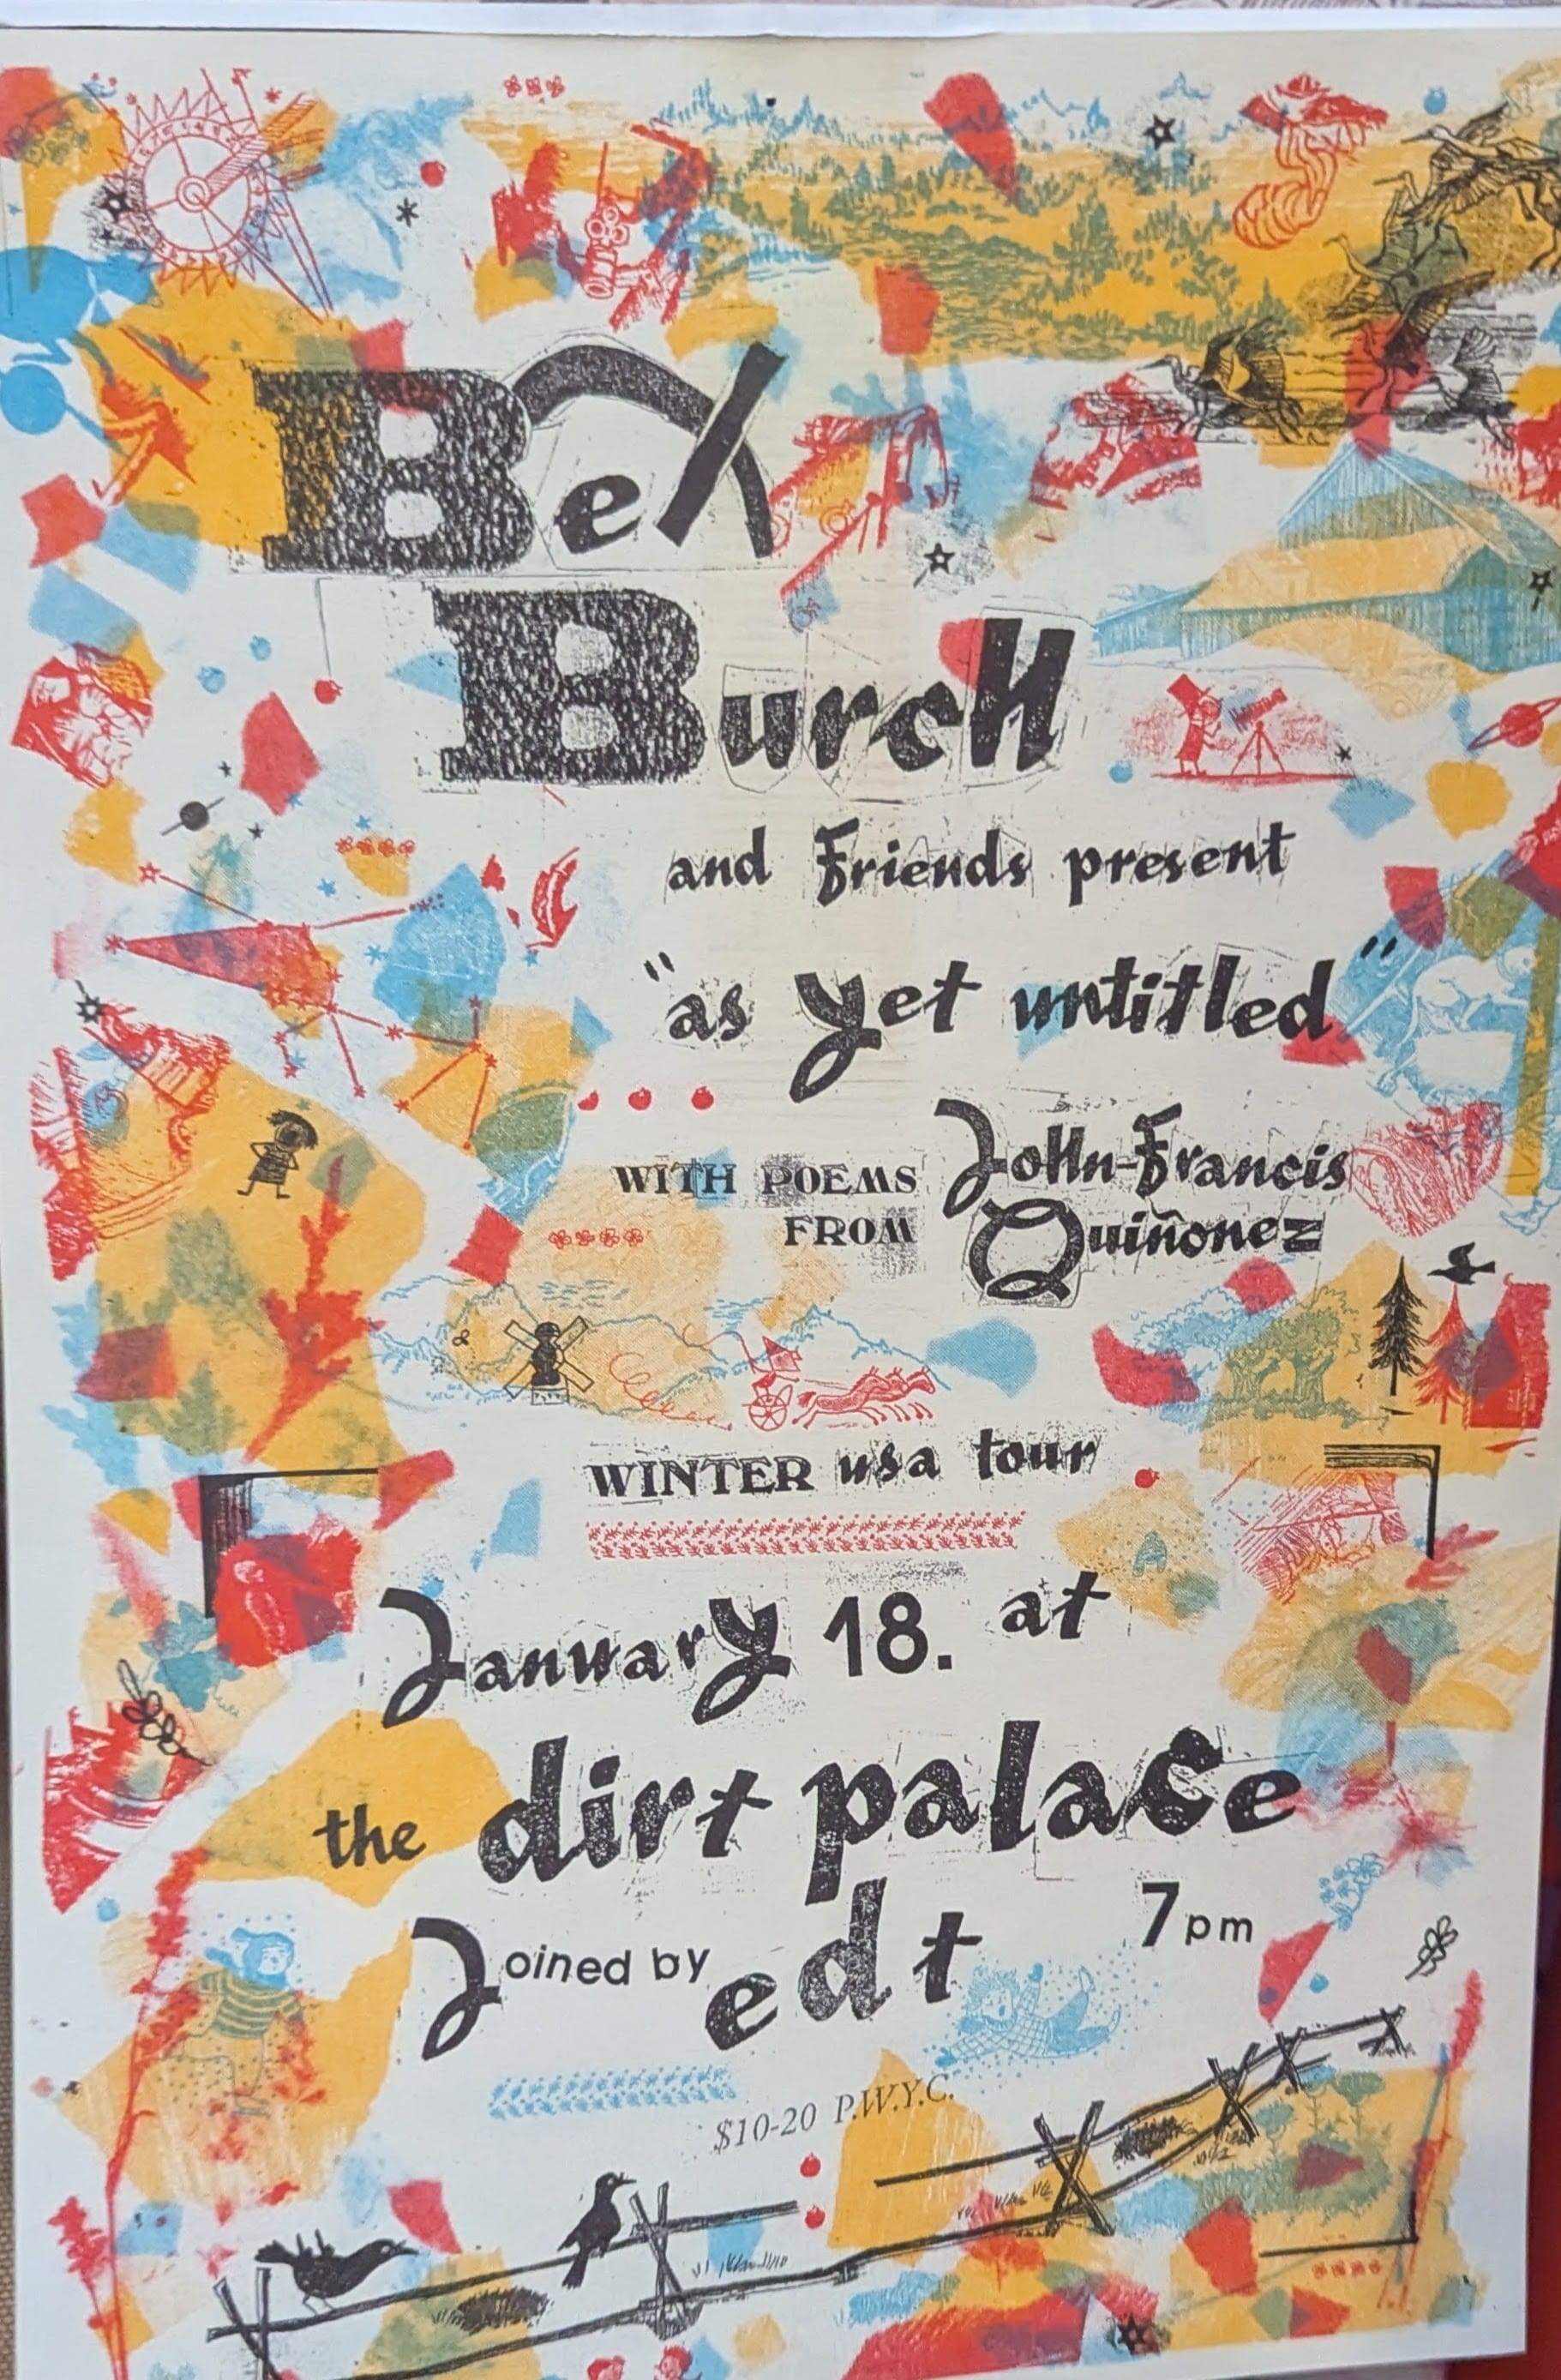 Bex
BurcH
and Friends present
"as yet untitled"
WITH POEMS
FROM
JoHn-Francis
Quiñonez
WINTER usa tour
January 18. at
the dirt palace
Joined by edt
7pm
$10-20 P.W.Y.C.